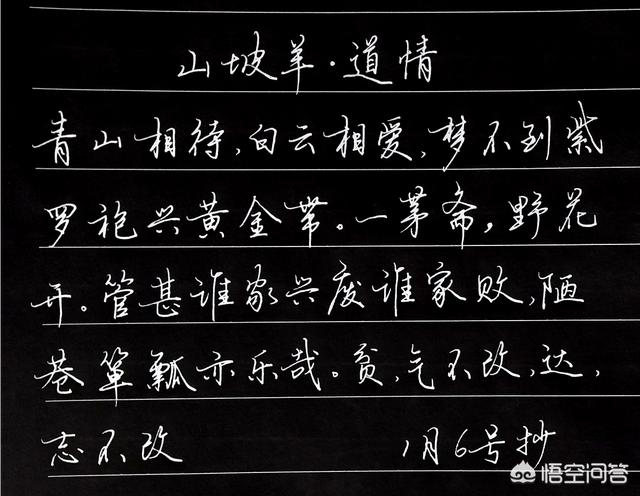 山坡羊·道情
青山相待,白云相爱,梦不到紫
罗袍兴黄金带。一茅斋,野花
开。管甚谁家兴废谁家败,陋
巷箪瓢亦乐哉。贫,气不改,达,
志不改
1月6号抄
悟空问答